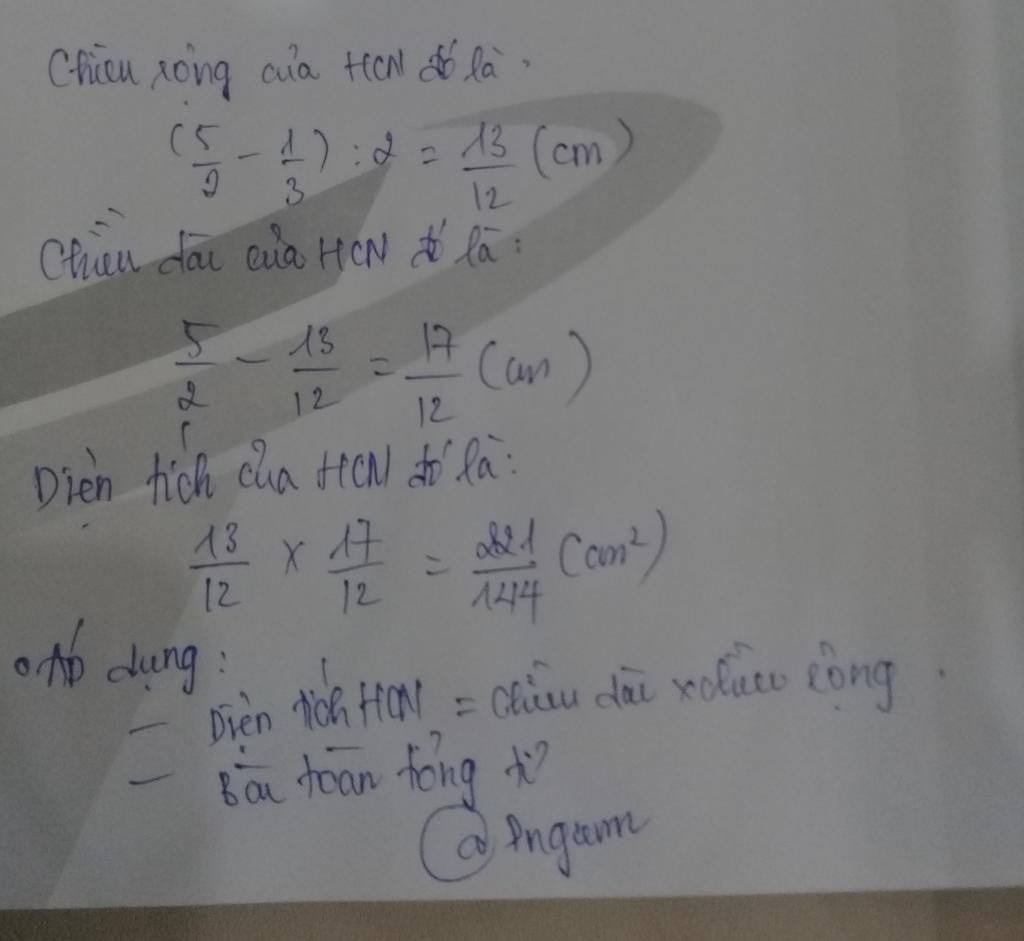 Chiều rộng của HCN đó là:
(5/2 - 1/3) : 2 = 13/12 (cm)
Chiều dài của HCN đó là:
5/2 - 13/12 = 17/12 (cm)
Diện tích của HCN đó là:
13/12 x 17/12 = 221/144 (cm²)
• Áp dụng:
- Diện tích HCN = chiều dài x chiều rộng.
- Bài toán tổng tỉ